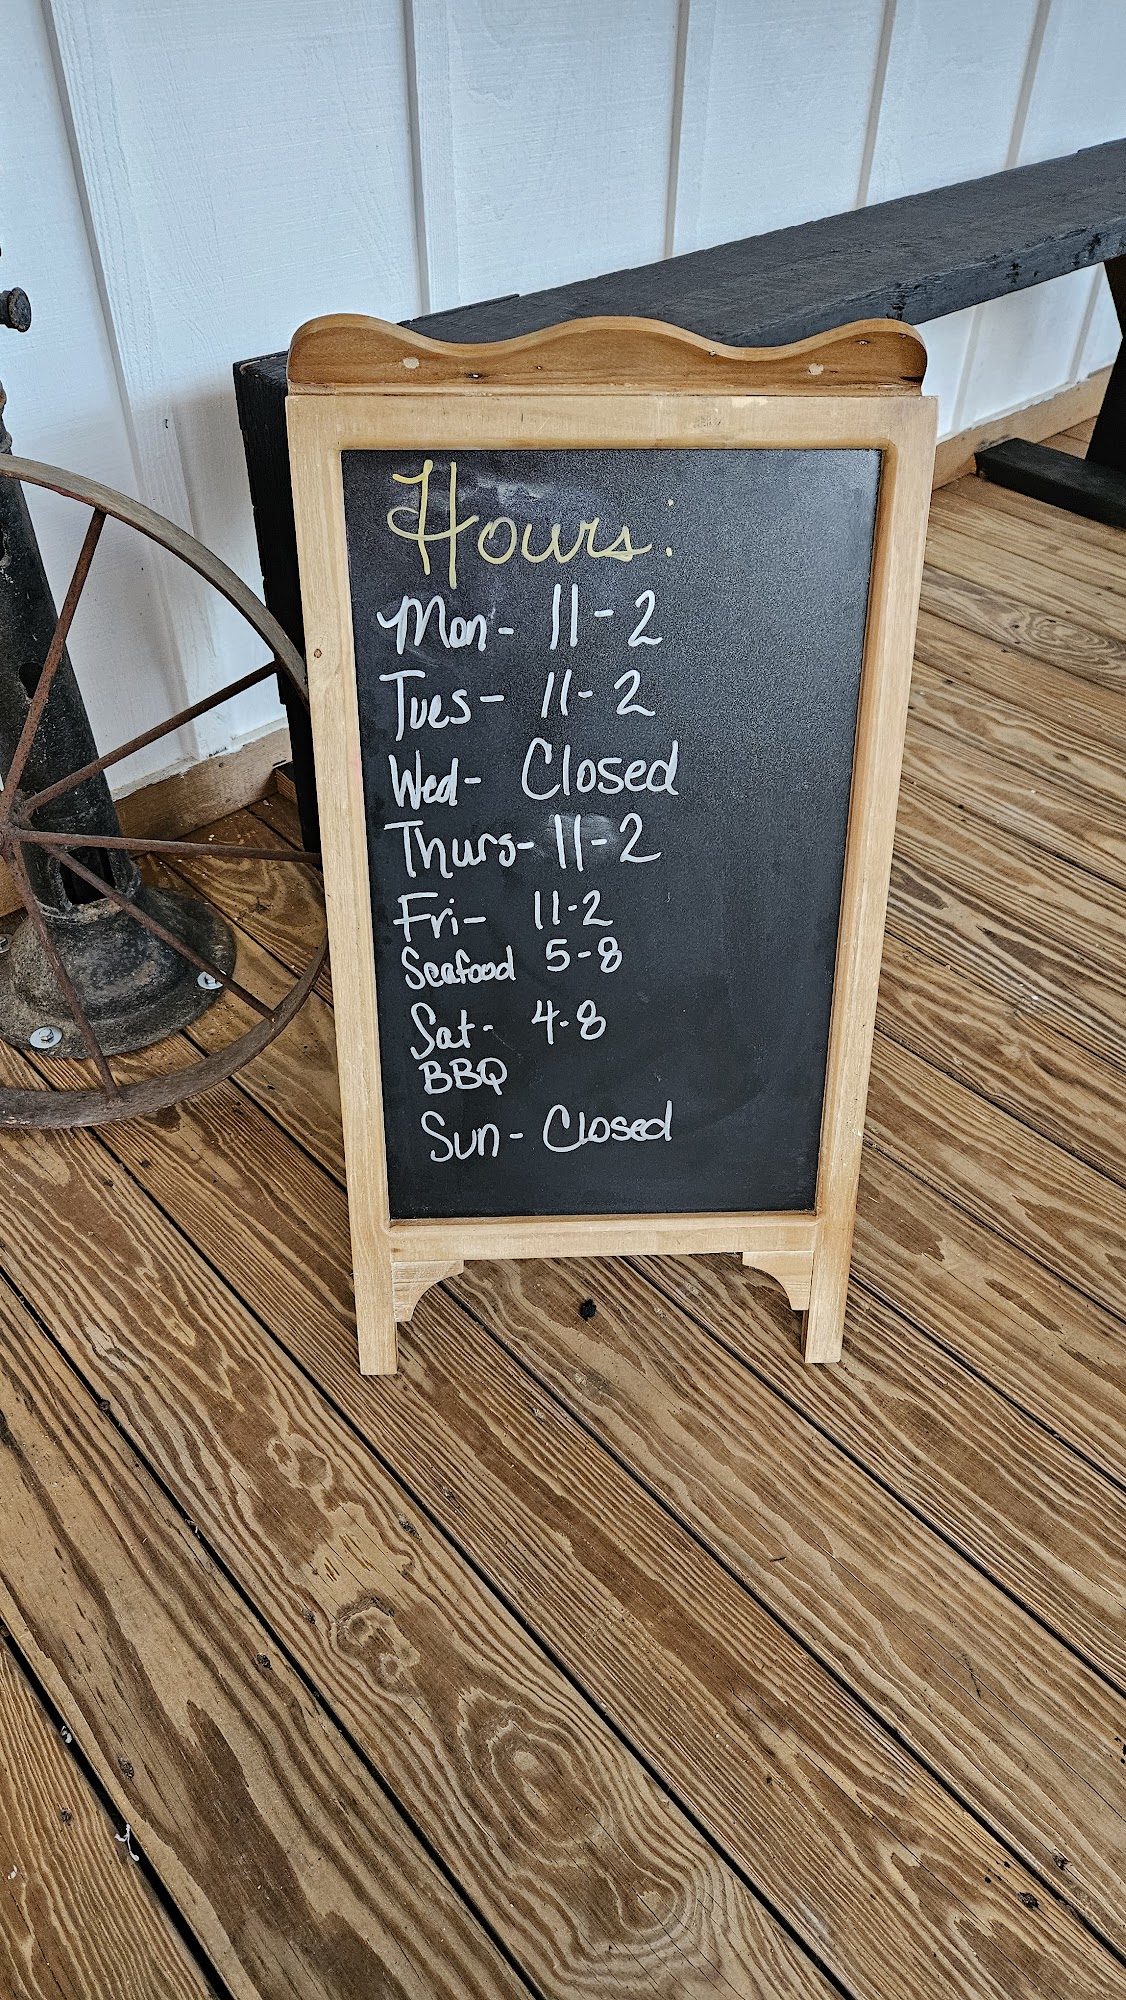 Hours:
Mon- 11-2
Tues- 11-2
Wed- Closed
Thurs- 11-2
Fri- 11-2
Seafood 5-8
Sat- 4-8
BBQ
Sun- Closed